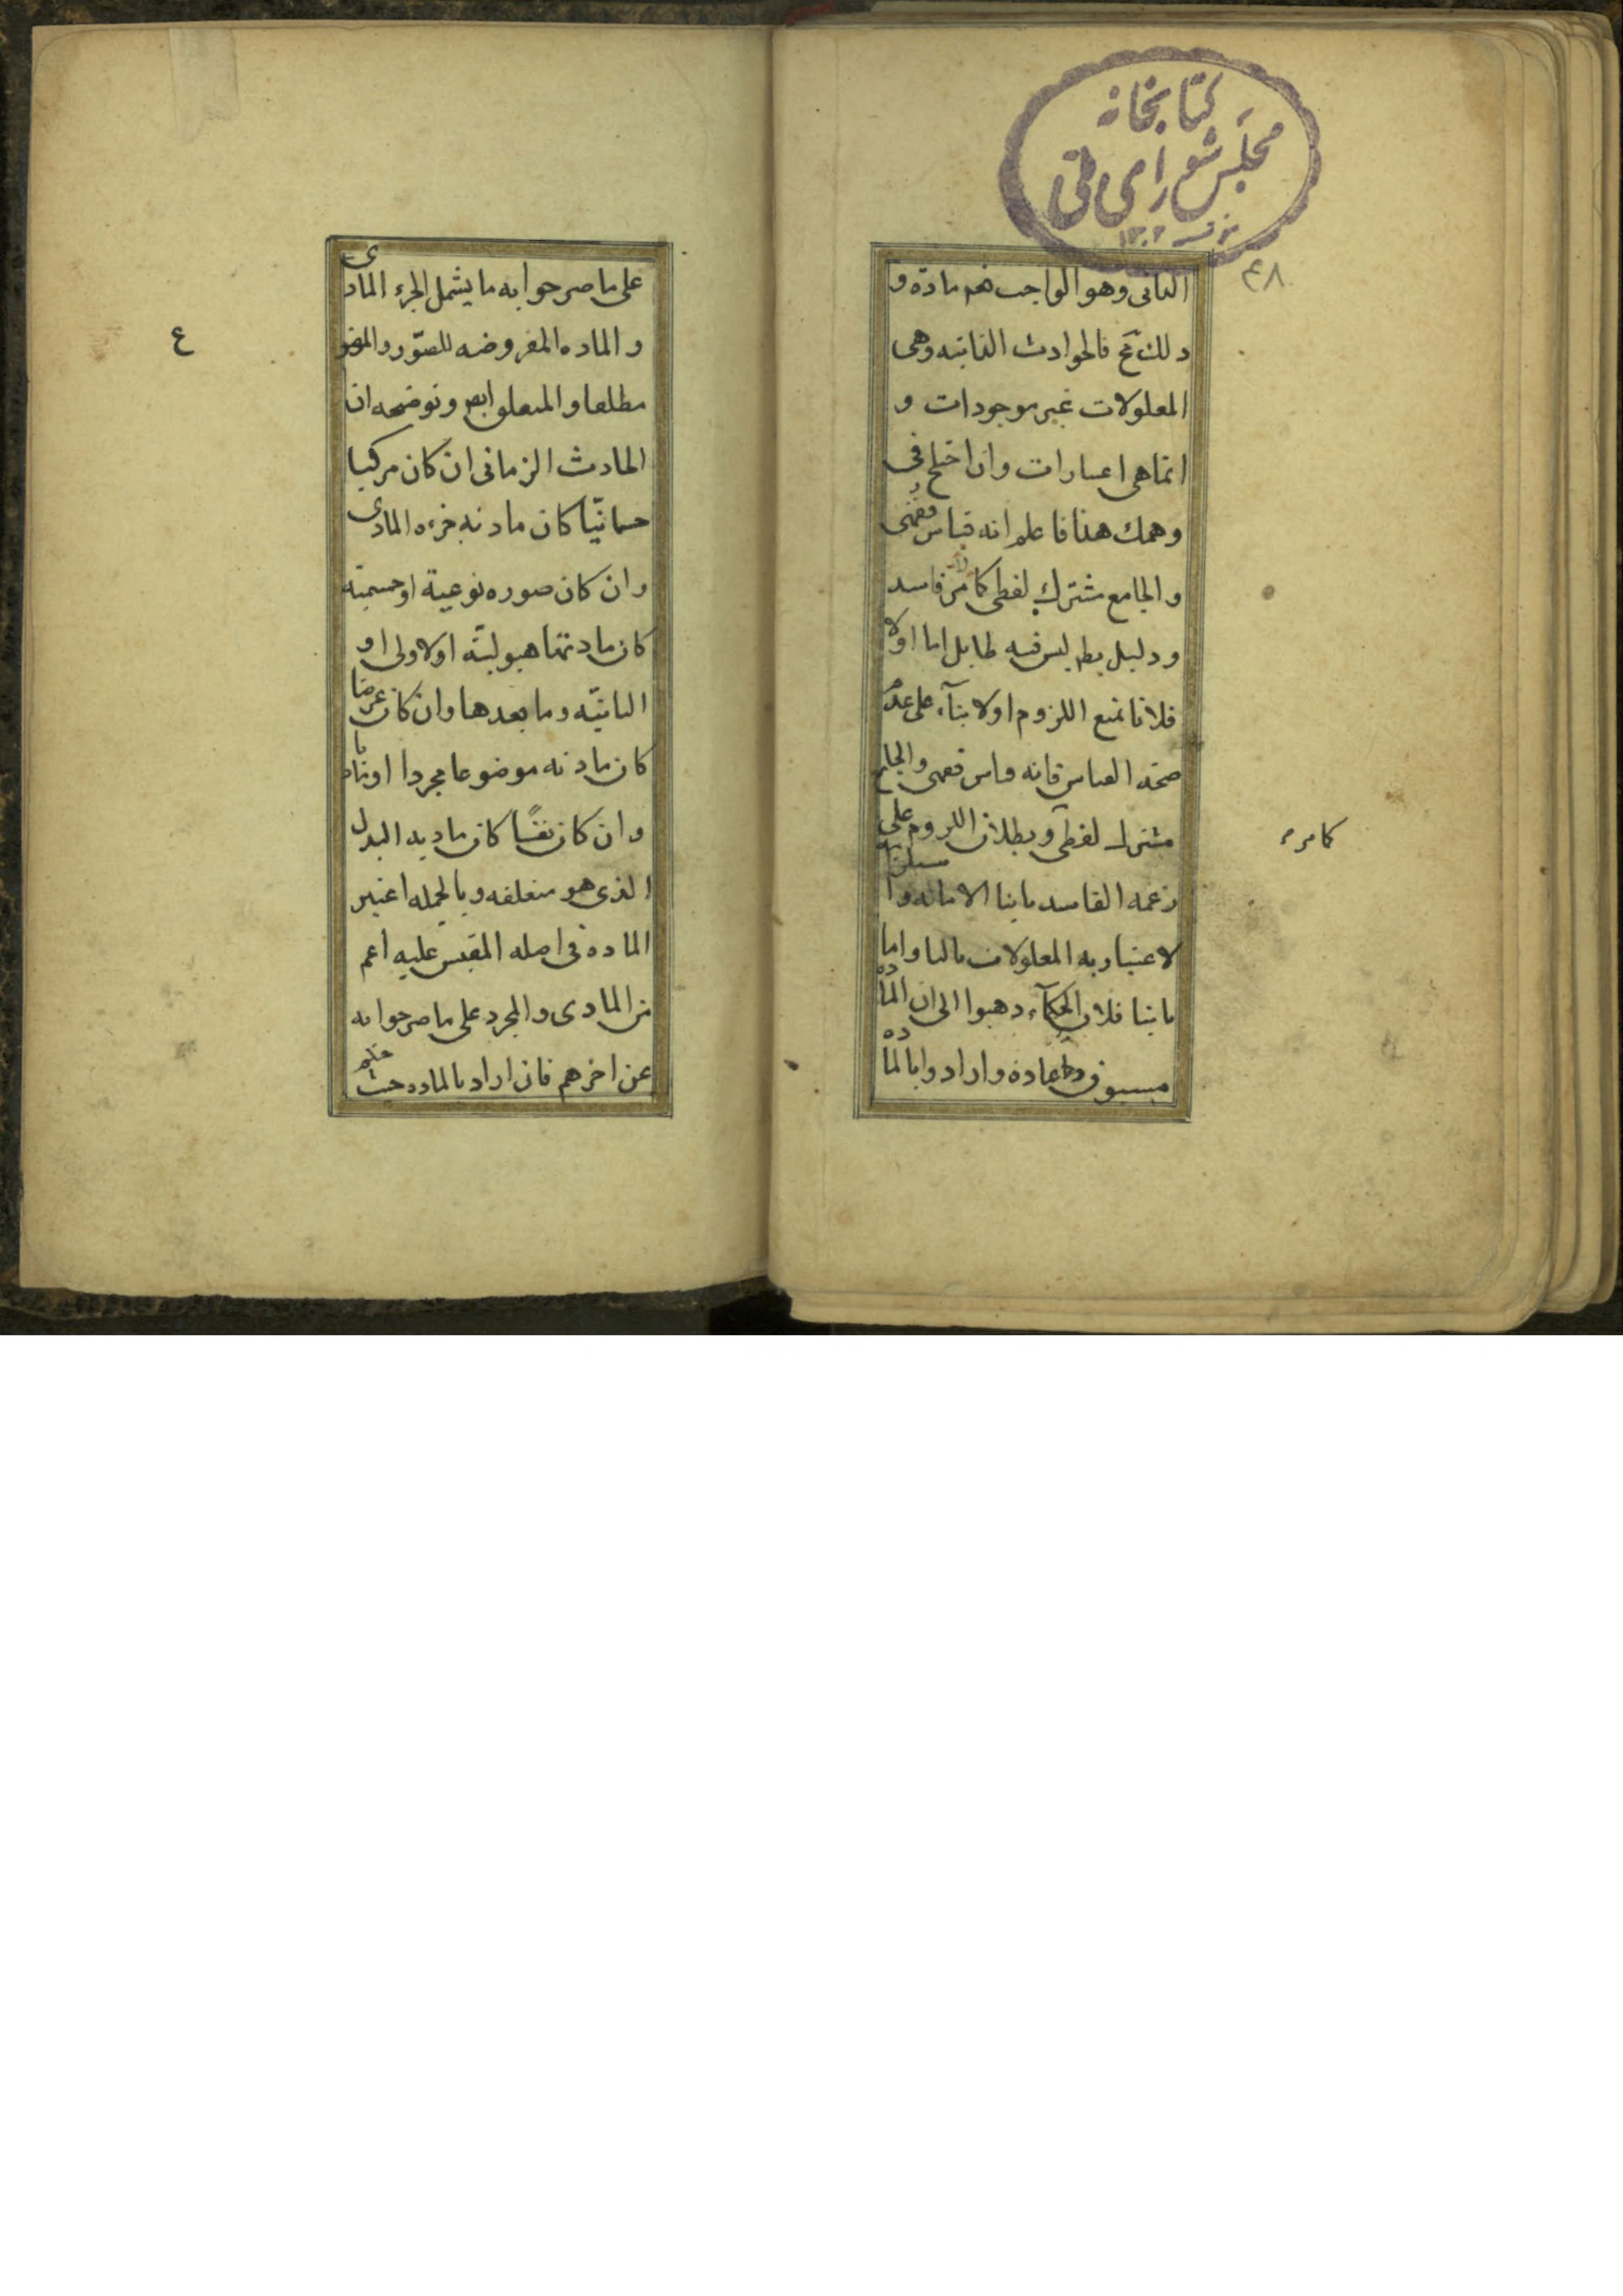 كتابخانه
مجلس شورای ملی
٤٨
الثانى وهو الواجب فهم مادة و
ذلك مح فالحوادث الفانيه وهى
المعلولات غير موجودات و
انما هى اعتبارات وان اختلج فى
وهمك هذا فاعلم انه قياس فقهى
والجامع مشترك لفظى كامر فاسد
ودليل بط ليس فيه طايل اما اولا
فلانا نمنع اللزوم اولا بنآء على عدم
صحه القياس فانه قياس فقهى والجامع
مشترك لفظى وبطلان اللزوم على
كامر
زعمه الفاسد ثانيا الا مانه وا
لا عتباريه المعلولات ثالثا واما
ثانيا فلان الحكمآء ذهبوا الى ان الماده
مسبوق ماده وارادوا بالماده
على ما صرحوا به ما يشمل الجزء المادى
والماده المفروضه للصور والموضو
ع
مطلقا والمتعلق ايض وتوضيحه ان
الحادث الزمانى ان كان مركبا
جسمانيا كان مادته جزءه المادى
وان كان صوره نوعية او جسمية
كان مادتها هيوليته الاولى او
الثانيه وما بعدها وان كان عرضا
كان مادته موضوعا مجردا او ماديا
وان كان نفسا كان ماديه البدل
الذى هو متعلقه وبالجمله اعتبر
الماده فى اصله المقيس عليه اعم
من المادى والمجرد على ما صرحوا به
عن اخرهم فان اراد بالماده حيث